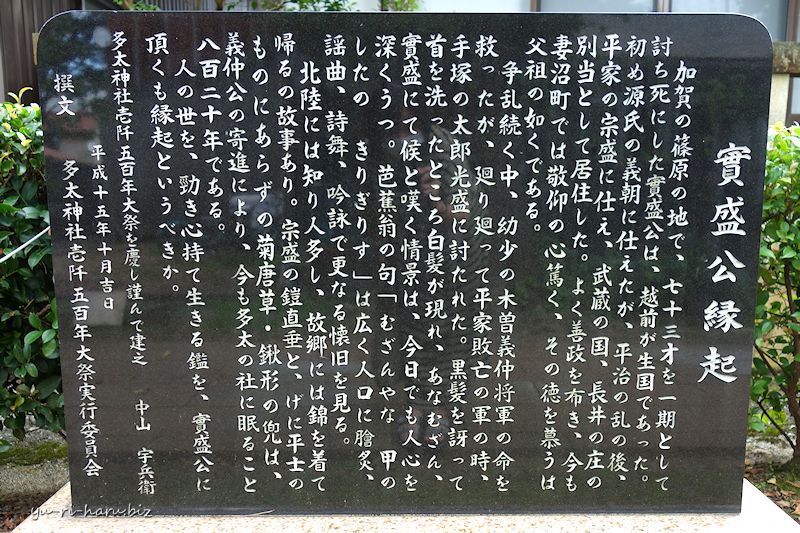 實盛公縁起
加賀の篠原の地で、七十三才を一期として
討ち死にした實盛公は、越前が生国であった。
初め源氏の義朝に仕えたが、平治の乱の後、
平家の宗盛に仕え、武蔵の国、長井の庄の
別当として居住した。よく善政を布き、今も
妻沼町では敬仰の心篤く、その徳を慕うは
父祖の如くである。
争乱続く中、幼少の木曽義仲将軍の命を
救ったが、廻り廻って平家敗亡の軍の時、
手塚の太郎光盛に討たれた。黒髪を訝って
首を洗ったところ白髪が現れ、あなむざん、
實盛にて候と嘆く情景は、今日でも人心を
深くうつ。芭蕉翁の句「むざんやな 甲の
したの きりぎりす」は広く人口に膾炙、
謡曲、詩舞、吟詠で更なる懐旧を見る。
北陸には知り人多し、故郷には錦を着て
帰るの故事あり。宗盛の鎧直垂と、げに平士の
ものにあらずの菊唐草・鍬形の兜は、
義仲公の寄進により、今も多太の社に眠ること
八百二十年である。
人の世を、勁き心持て生きる鑑を、實盛公に
頂くも縁起というべきか。
平成十五年十月吉日
多太神社壱阡五百年大祭を慶し謹んで建之 中山 宇兵衛
撰文 多太神社壱阡五百年大祭実行委員会
yu-ri-haru.biz